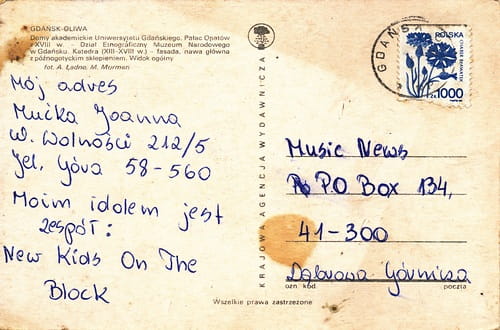 GDAŃSK-OLIWA
Domy akademickie Uniwersytetu Gdańskiego. Pałac Opatów
z XVIII w. - Dział Etnograficzny Muzeum Narodowego
w Gdańsku. Katedra (XIII-XVIII w.) - fasada, nawa główna
z późnogotyckim sklepieniem. Widok ogólny
fot. A. Ładno, M. Murman
Mój adres
Mućka Joanna
w. Wolności 212/5
Jel. Góra 58-560
Moim idolem jest
zespół:
New Kids On The
Block
KRAJOWA AGENCJA WYDAWNICZA
GDAŃSK
POLSKA
zł 1000
Music News
PO Box 134,
41-300
Dąbrowa Górnicza
ozn kod poczta
Wszelkie prawa zastrzeżone